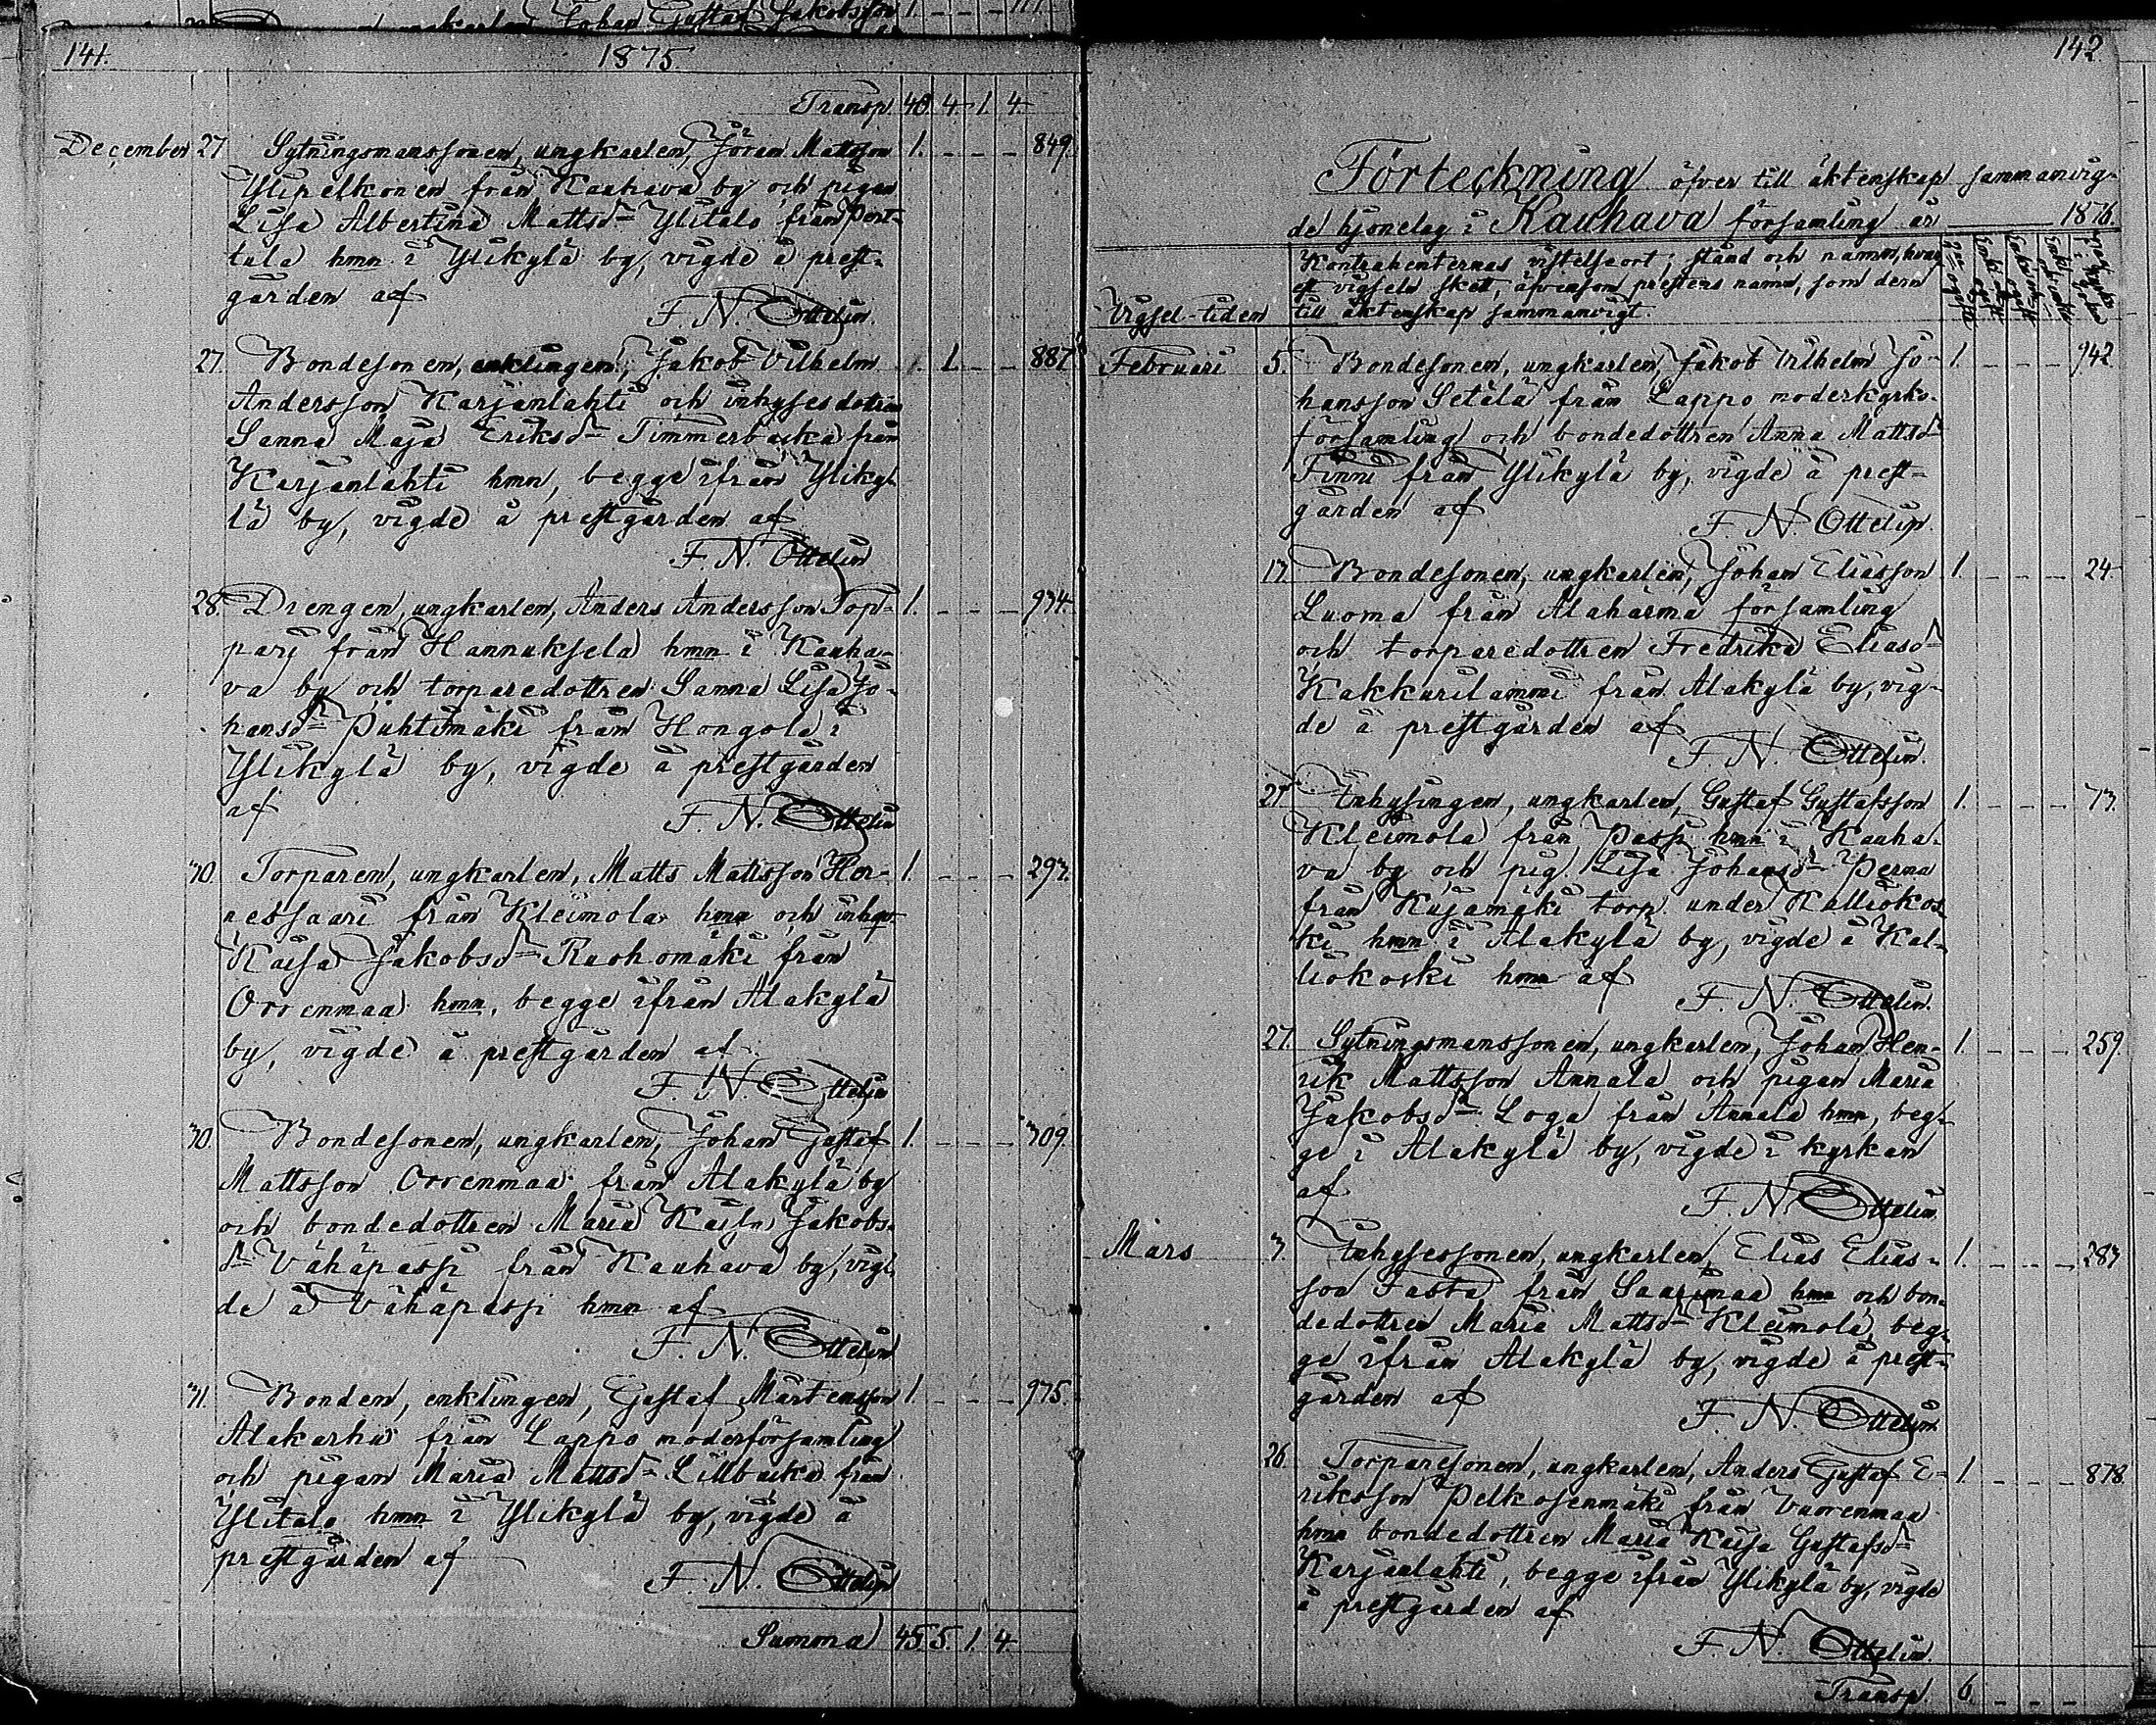 ungkarlen Johan Gustaf Jakobsson 1. - - -
141. 1875.
Transp. 40. 4. 1. 4.
December 27. Sytningsmanssonen, ungkarlen, Jöran Mattsson 1. - - - 849.
Ylipelkonen från Kauhava by och pigan
Lisa Albertina Mattsdr Ylitalo från Pert-
tula hmn i Ylikylä by, vigde å prest-
gården af
F. N. Ottelin.
27. Bondesonen, enklingen, Jakob Vilhelm . 1. - - 887.
Andersson Karjanlahti och inhysesdottren
Sanna Maja Eriksdr Timmerbacka från
Karjanlahti hmn, begge ifrån Ylikyl-
lä by, vigde å prestgården af
F. N. Ottelin
28. Drengen, ungkarlen, Anders Andersson Top- 1. - - - 934.
pari från Hannuksela hmn i Kauha-
va by och torparedottren Sanna Lisa Jo-
hansdr Puhtimäki från Hongola i
Ylikylä by, vigde å prestgården
af
F. N. Ottelin
30. Torparen, ungkarlen, Matts Mattsson Her- 1. - - - 293.
nessaari från Kleimola hmn och inhys.
Kaisa Jakobsdr Ruohomäki från
Orrenmaa hmn, begge ifrån Alakylä
by, vigde å prestgården af
F. N. Ottelin
30. Bondesonen, ungkarlen, Johan Gustaf 1. - - - 309.
Mattsson Orrenmaa från Alakylä by
och bondedottren Maria Kaisa Jakobs-
dr Vähäpassi från Kauhava by, vig-
de å Vähäpassi hmn af
F. N. Ottelin
31. Bonden, enklingen, Gustaf Mårtensson 1. - - - 975.
Alakarhu från Lappo moderförsamling
och pigan Maria Mattsdr Lillbacka från
Ylitalo hmn i Ylikylä by, vigde å
prestgården af
F. N. Ottelin
Summa 45. 5. 1. 4.
142.
Förteckning öfver till äktenskap sammanvig-
de hjonelag i Kauhava församling år 1876.
Kontrahenternas vistelseort; stånd och namn, hvar-
est vigseln skett, äfvensom prestens namn, som dem
Vigsel-tiden till äktenskap sammanvigt.
Februari 5. Bondesonen, ungkarlen, Jakob Vilhelm Jo- 1. - - - 942.
hansson Setälä från Lappo moderkyrko-
församling och bondedottren Anna Mattsdr
Finni från Ylikylä by, vigde å prest-
gården af
F. N. Ottelin.
13. Bondesonen, ungkarlen, Johan Eliasson 1. - - - 24.
Luoma från Alahärmä församling
och torparedottren Fredrika Eliasdr
Kakkurilammi från Alakylä by, vig-
de å prestgården af
F. N. Ottelin.
27. Inhysingen, ungkarlen, Gustaf Gustafsson 1. - - - 73.
Kleimola från Passi hmn i Kauha-
va by och pig. Lisa Johansdr Perna
från Kujamäki torp under Kalliokos-
ki hmn i Alakylä by, vigde å Kal-
liokoski hmn af
F. N. Ottelin.
27. Sytningsmanssonen, ungkarlen, Johan Hen- 1. - - - 259.
rik Mattsson Annala och pigan Maria
Jakobsdr Loga från Annala hmn, beg-
ge i Alakylä by, vigde i kyrkan
af
F. N. Ottelin.
Mars 3. Inhysessonen, ungkarlen, Elias Elias- 1. - - - 283.
son Tasta från Saarimaa hmn och bon-
dedottren Maria Mattsdr Kleimola, beg-
ge ifrån Alakylä by, vigde å prest-
gården af
F. N. Ottelin.
26. Torparesonen, ungkarlen, Anders Gustaf E- 1. - - - 878.
riksson Pelkosenmäki från Vuorenmaa
hmn bondedottren Maria Kaisa Gustafsdr
Karjanlahti, begge ifrån Ylikylä by, vigde
å prestgården af
F. N. Ottelin.
Transp. 6. - - -